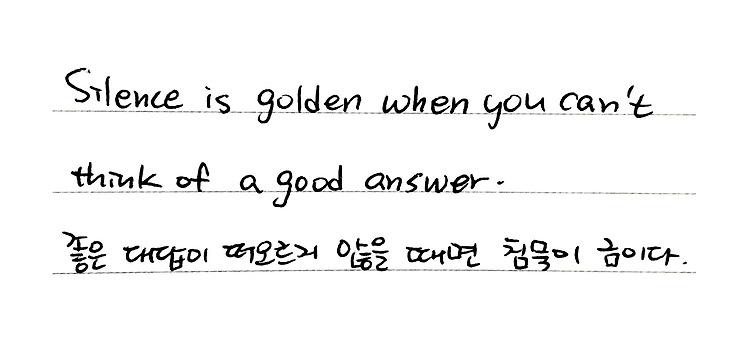 Silence is golden when you can't
think of a good answer.
좋은 대답이 떠오르지 않을 때면 침묵이 금이다.